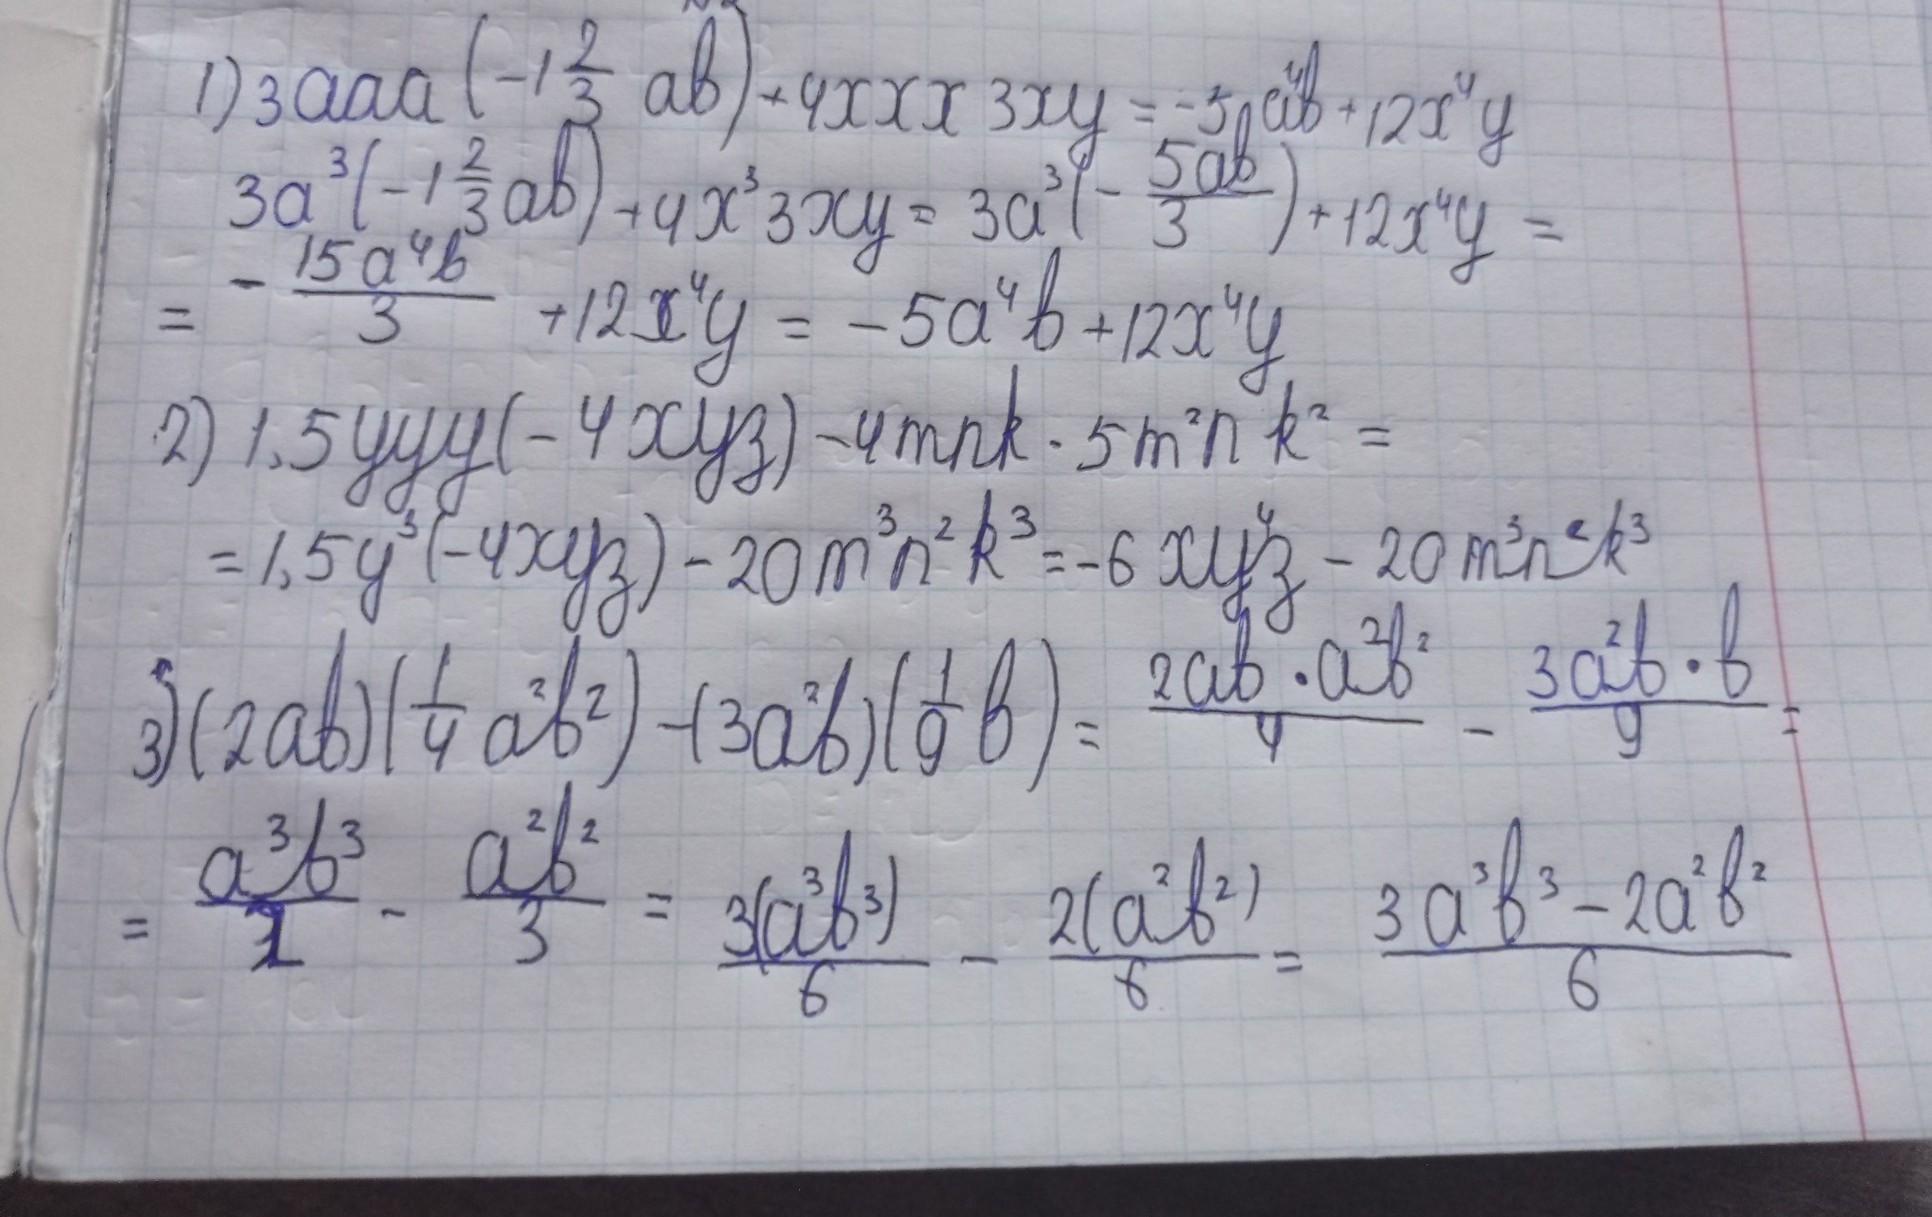 1) 3aaa(-1 2/3 ab)+4xxx3xy=-5a⁴b+12x⁴y
3a³(-1 2/3 ab)+4x³3xy=3a³(-5ab/3)+12x⁴y=
=-15a⁴b/3+12x⁴y=-5a⁴b+12x⁴y
2) 1,5yyy(-4xyz)-4mnk·5m²nk²=
=1,5y³(-4xyz)-20m³n²k³=-6xy⁴z-20m³n²k³
3) (2ab)(1/4 a²b²)-(3a²b)(1/9 b)=2ab·a²b²/4-3a²b·b/9=
=a³b³/2-a²b²/3=3(a³b³)/6-2(a²b²)/6=3a³b³-2a²b²/6